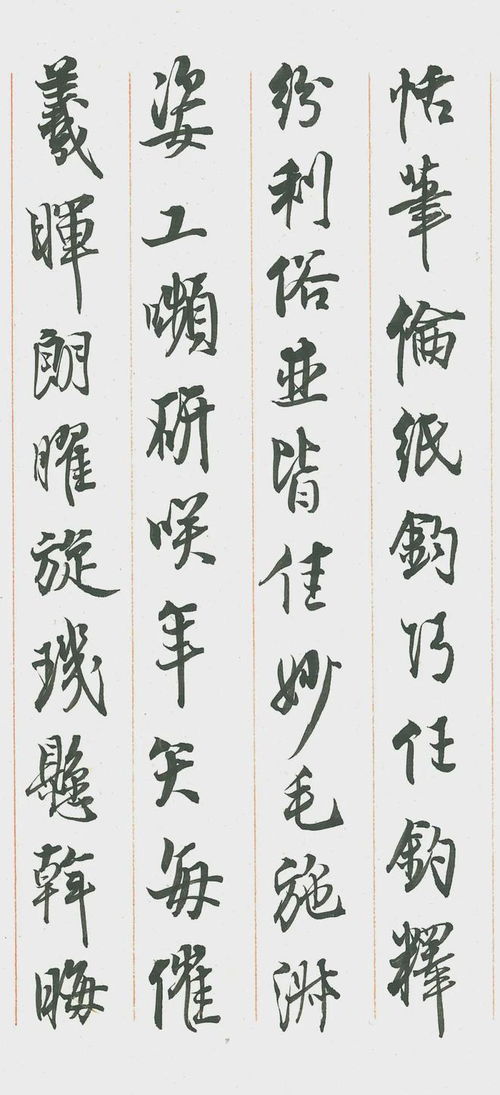 恬筆倫紙鈞巧任釣釋
紛利俗並皆佳妙毛施淑
姿工嚬研咲年矢每催
羲暉朗曜旋璣懸斡晦